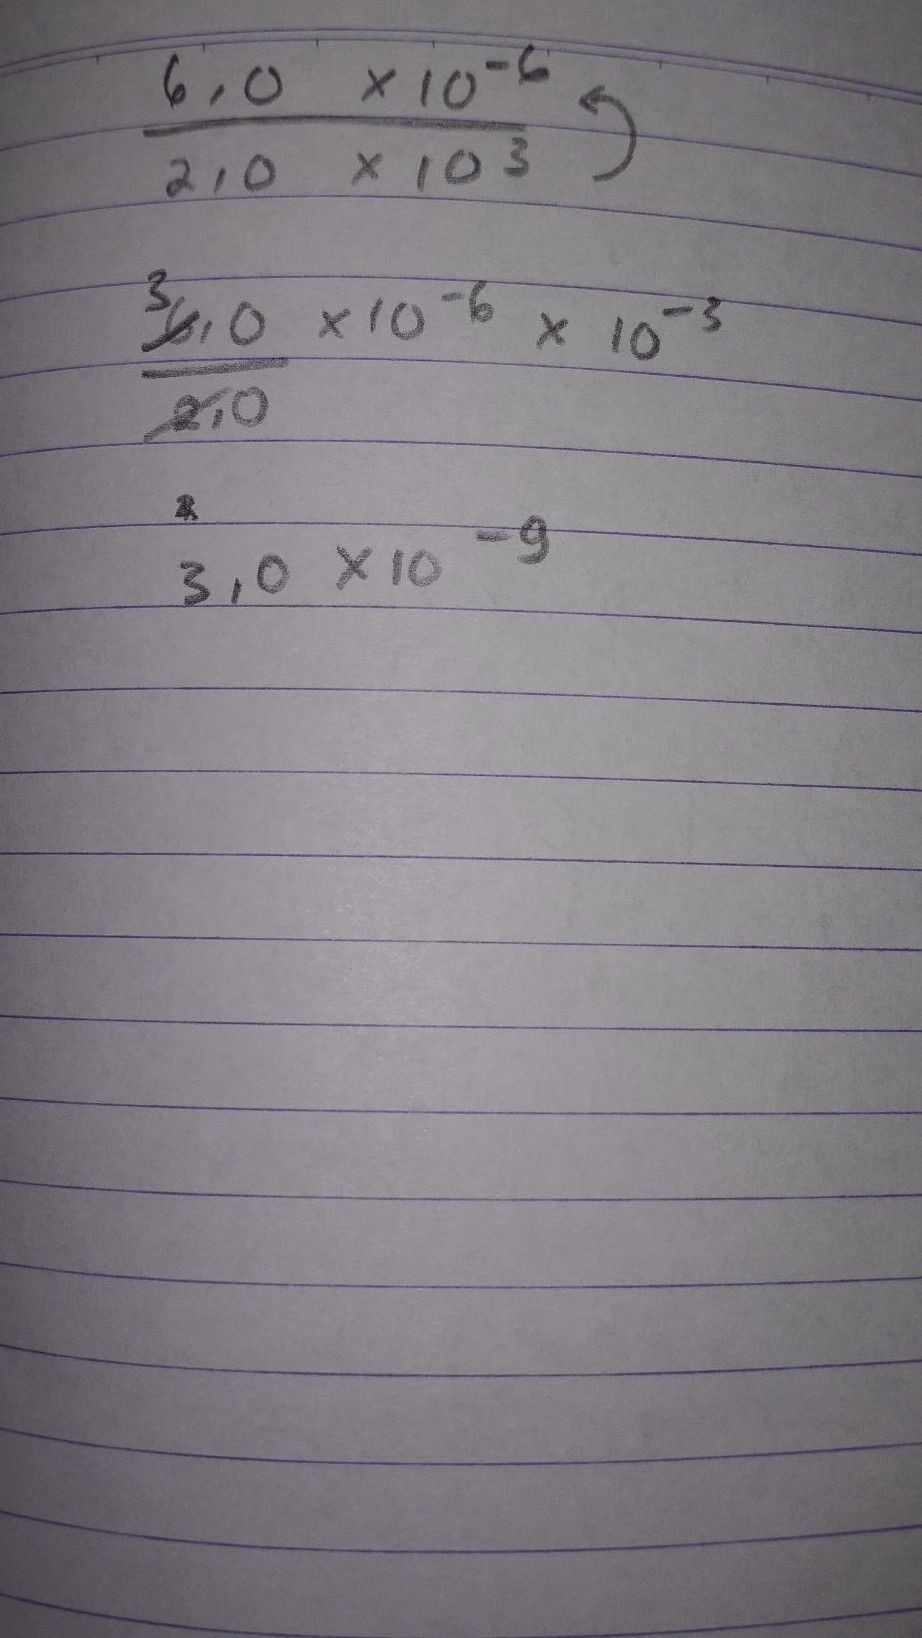 6,0 × 10⁻⁶
2,0 × 10³
3
6,0 × 10⁻⁶ × 10⁻³
2,0
3,0 × 10⁻⁹